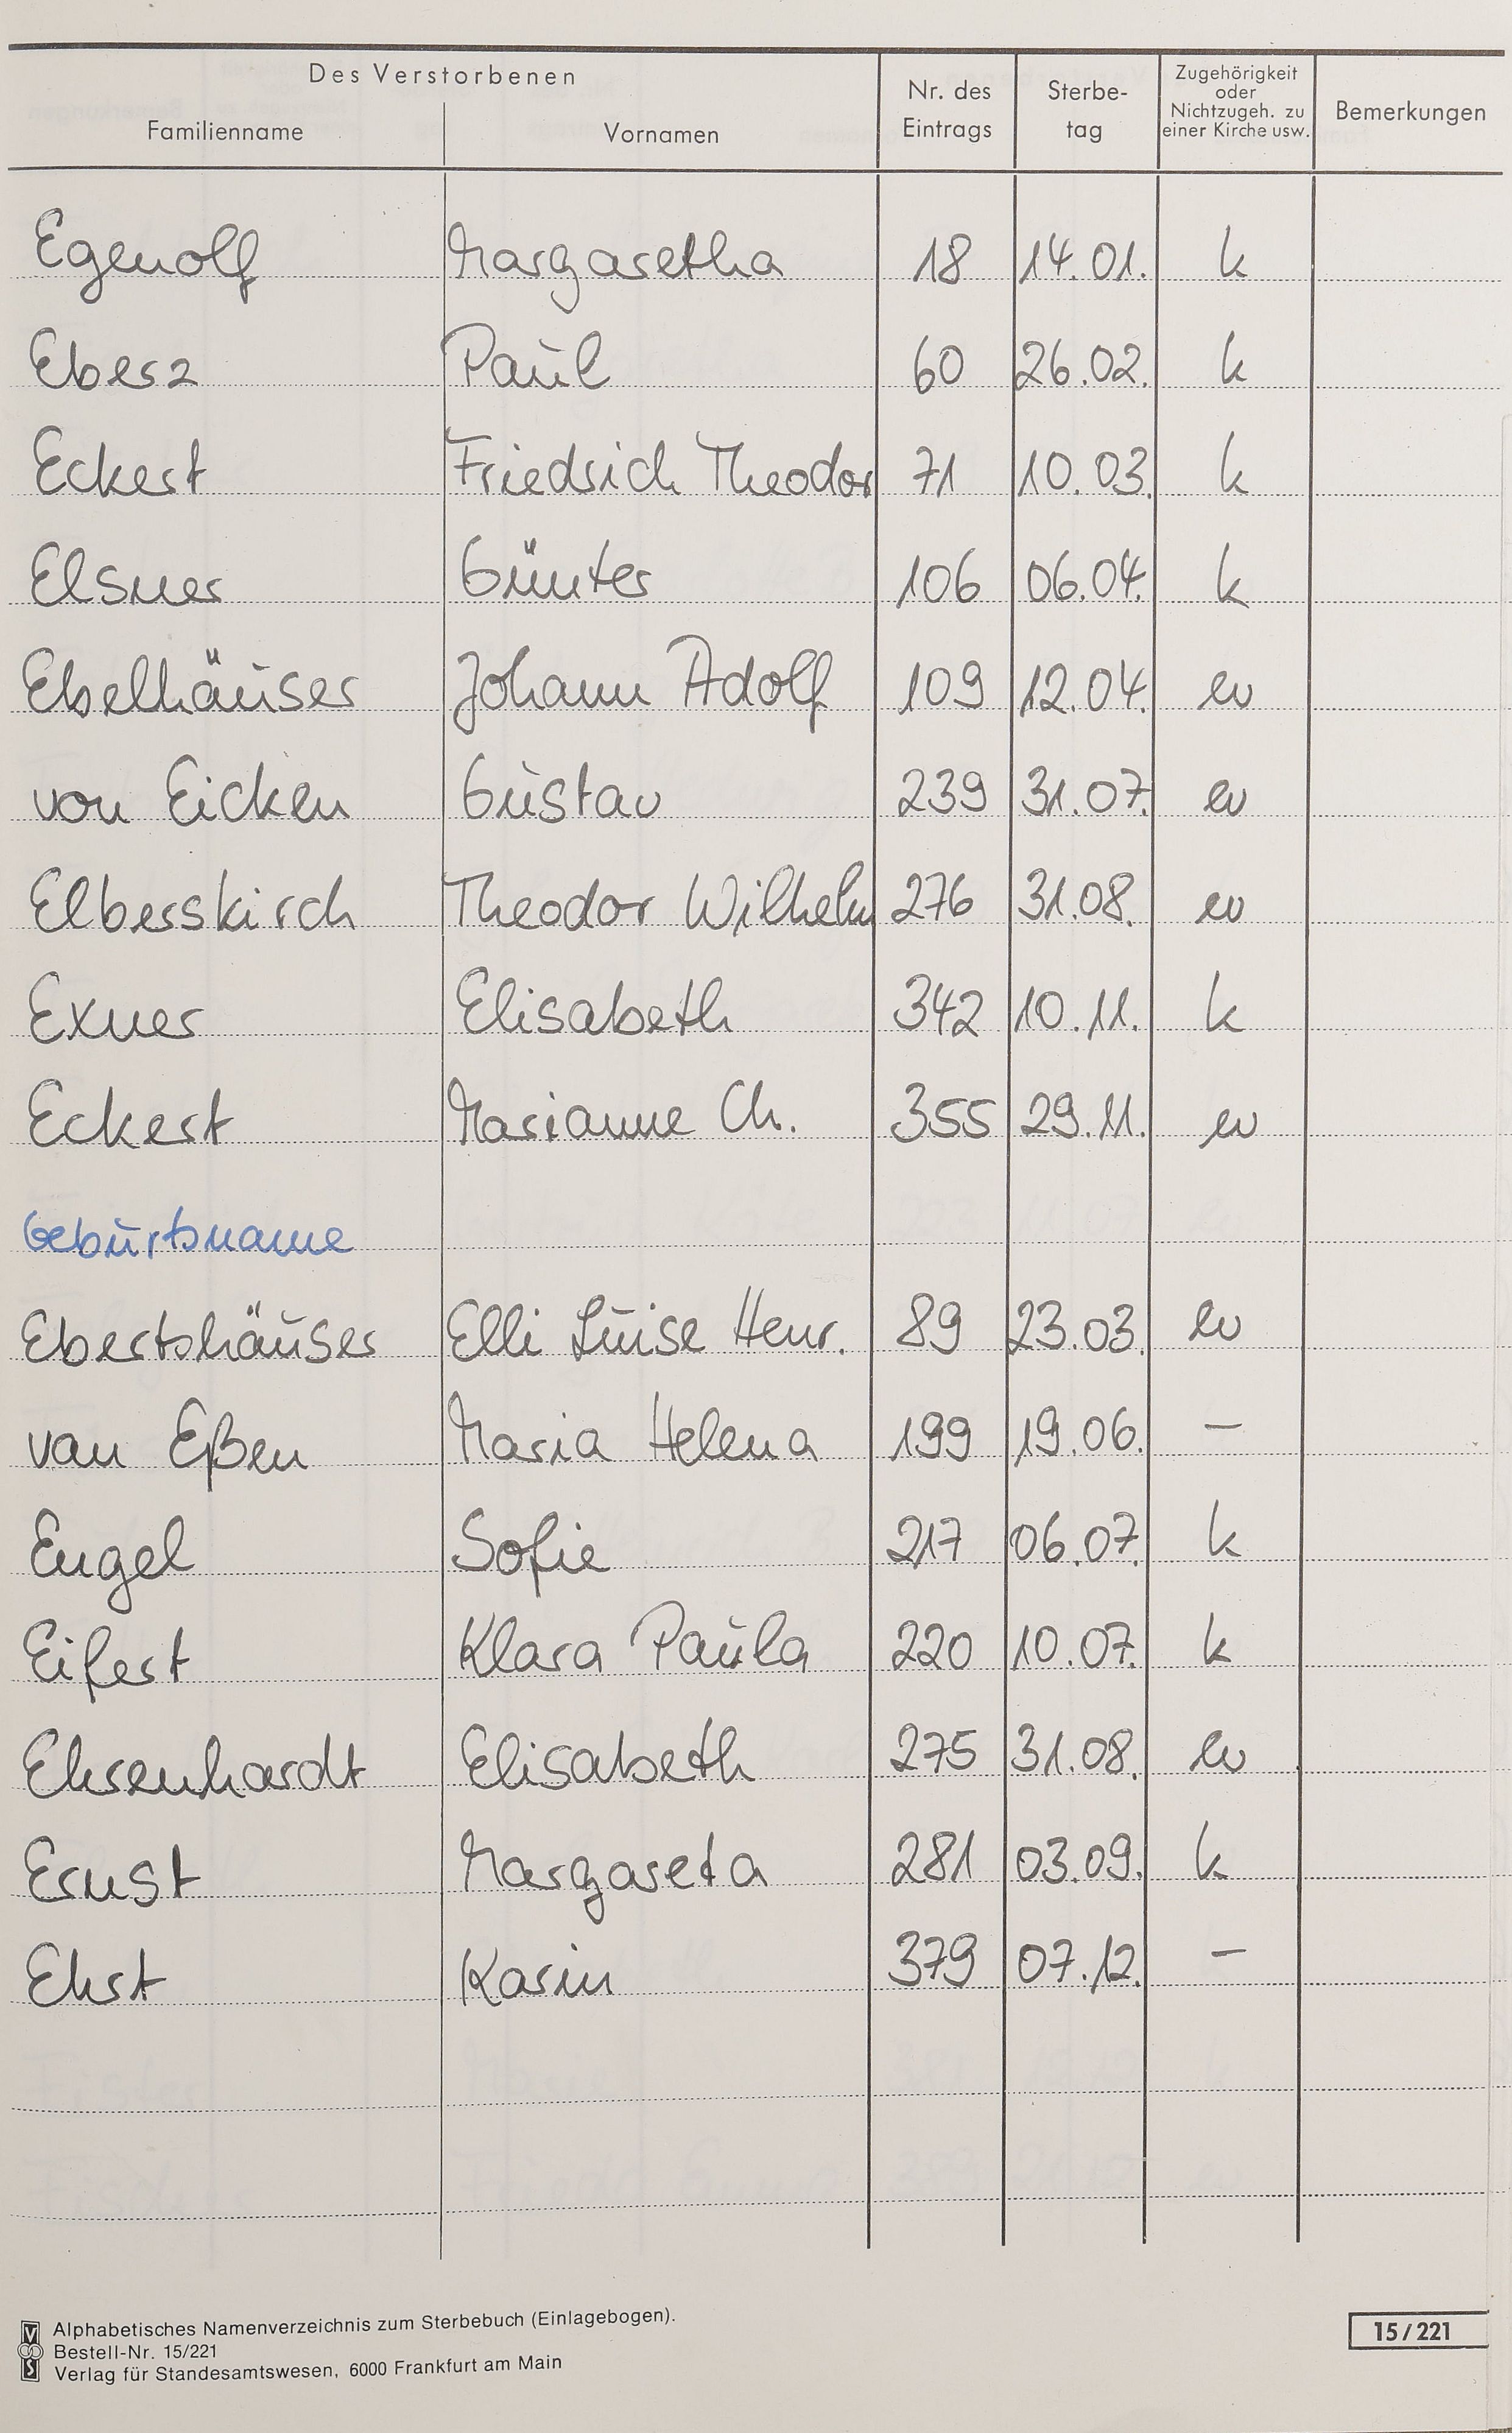 Des Verstorbenen
Familienname Vornamen Nr. des Eintrags Sterbetag Zugehörigkeit oder Nichtzugeh. zu einer Kirche usw. Bemerkungen
Egenolf Margaretha 18 14.01. k
Eberz Paul 60 26.02. k
Eckert Friedrich Theodor 71 10.03. k
Elsner Günter 106 06.04. k
Ebelhäuser Johann Adolf 109 12.04. ev
von Eicken Gustav 239 31.07. ev
Elberskirch Theodor Wilhelm 276 31.08. ev
Exner Elisabeth 342 10.11. k
Eckert Marianne Ch. 355 29.11. ev
Geburtsname
Ebertshäuser Elli Luise Henr. 89 23.03. ev
van Eßen Maria Helena 199 19.06. —
Engel Sofie 217 06.07. k
Eifert Klara Paula 220 10.07. k
Ehrenhardt Elisabeth 275 31.08. ev
Ernst Margareta 281 03.09. k
Ehrt Karin 379 07.12. —
Alphabetisches Namenverzeichnis zum Sterbebuch (Einlagebogen).
Bestell-Nr. 15/221
Verlag für Standesamtswesen, 6000 Frankfurt am Main
15/221